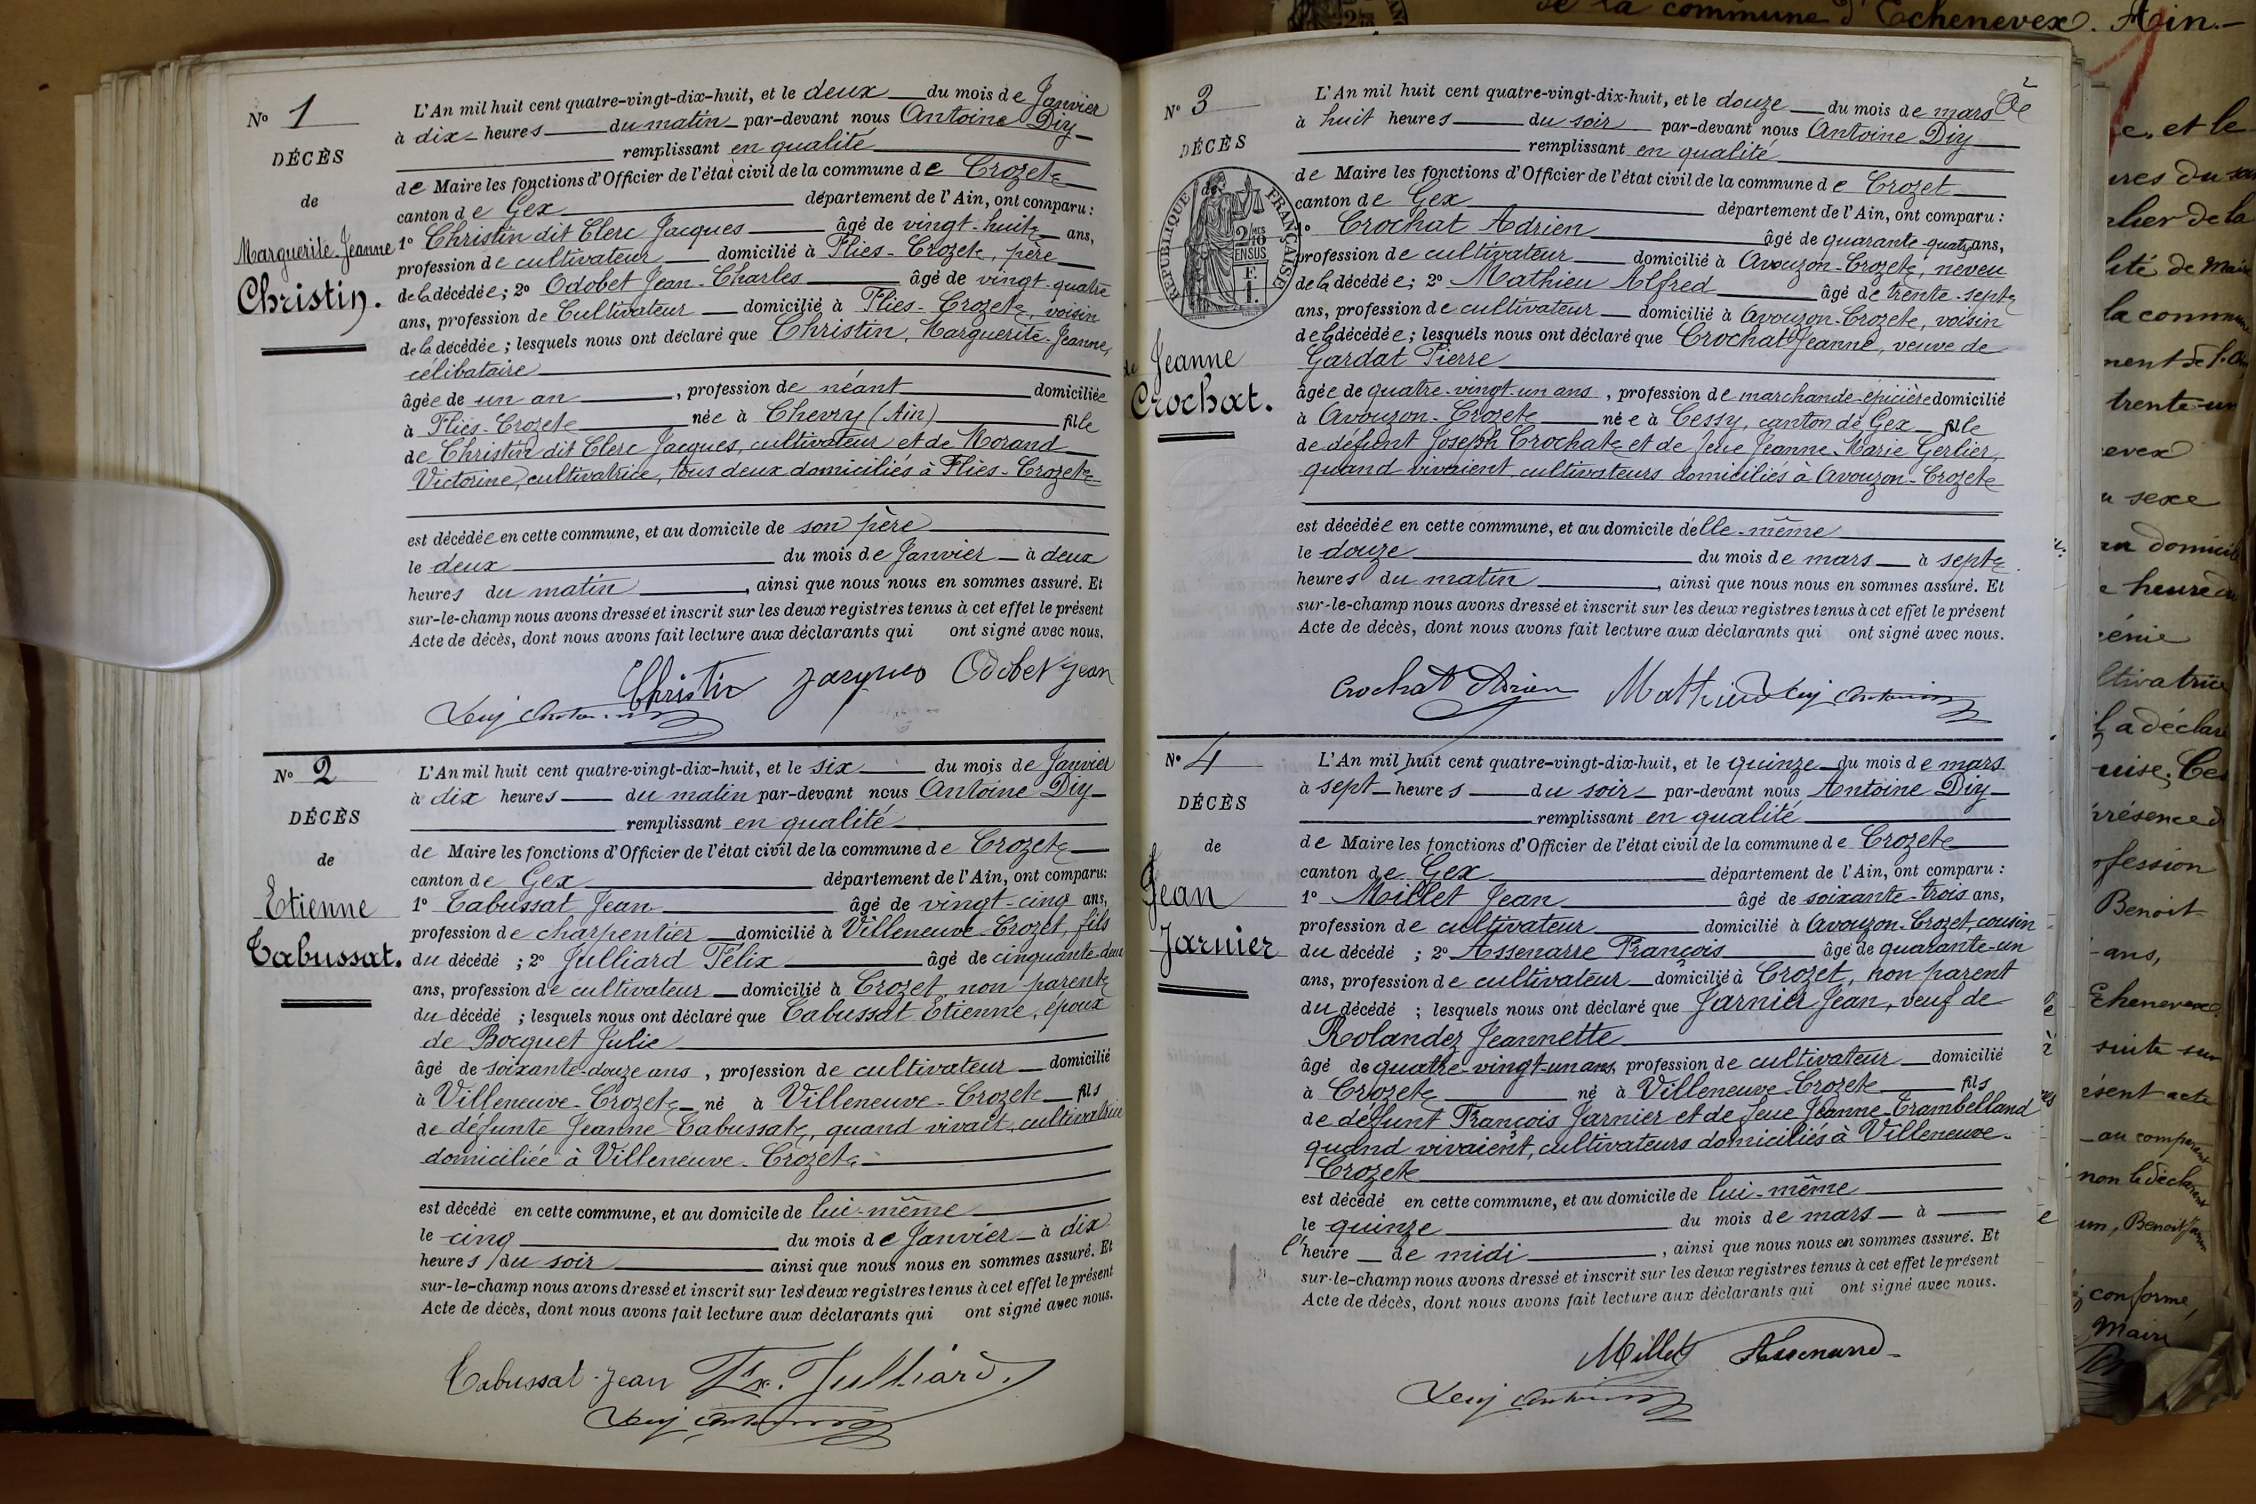 N° 1
DÉCÈS
de
Marguerite-Jeanne
Christin.
L'An mil huit cent quatre-vingt-dix-huit, et le deux du mois de Janvier
à dix heures du matin par-devant nous Antoine Diy
remplissant en qualité
de Maire les fonctions d'Officier de l'état civil de la commune de Crozet
canton de Gex département de l'Ain, ont comparu :
1° Christin dit Clerc Jacques âgé de vingt-huit ans,
profession de cultivateur domicilié à Flies-Crozet, père
de la décédée ; 2° Odobet Jean-Charles âgé de vingt-quatre
ans, profession de Cultivateur domicilié à Flies-Crozet, voisin
de la décédée ; lesquels nous ont déclaré que Christin, Marguerite-Jeanne,
célibataire
âgée de un an, profession de néant domiciliée
à Flies-Crozet née à Chevry (Ain) fille
de Christin dit Clerc Jacques, cultivateur et de Morand
Victorine, cultivatrice, tous deux domiciliés à Flies-Crozet
est décédée en cette commune, et au domicile de son père
le deux du mois de Janvier à deux
heures du matin, ainsi que nous nous en sommes assuré. Et
sur-le-champ nous avons dressé et inscrit sur les deux registres tenus à cet effet le présent
Acte de décès, dont nous avons fait lecture aux déclarants qui ont signé avec nous.
Christin Jacques Odobet Jean
N° 2
DÉCÈS
de
Etienne
Tabussat.
L'An mil huit cent quatre-vingt-dix-huit, et le six du mois de Janvier
à dix heures du matin par-devant nous Antoine Diy
remplissant en qualité
de Maire les fonctions d'Officier de l'état civil de la commune de Crozet
canton de Gex département de l'Ain, ont comparu :
1° Tabussat Jean âgé de vingt-cinq ans,
profession de charpentier domicilié à Villeneuve-Crozet, fils
du décédé ; 2° Julliard Félix âgé de cinquante-deux
ans, profession de cultivateur domicilié à Crozet, non parent
du décédé ; lesquels nous ont déclaré que Tabussat Etienne, époux
de Bocquet Julie
âgé de soixante-douze ans, profession de cultivateur domicilié
à Villeneuve-Crozet né à Villeneuve-Crozet fils
de défunte Jeanne Tabussat, quand vivait, cultivatrice
domiciliée à Villeneuve-Crozet
est décédé en cette commune, et au domicile de lui-même
le cinq du mois de Janvier à dix
heures du soir ainsi que nous nous en sommes assuré. Et
sur-le-champ nous avons dressé et inscrit sur les deux registres tenus à cet effet le présent
Acte de décès, dont nous avons fait lecture aux déclarants qui ont signé avec nous.
Tabussat Jean Fx. Julliard
2
N° 3
DÉCÈS
RÉPUBLIQUE FRANÇAISE
2/10 EN SUS
de Jeanne
Crochat.
L'An mil huit cent quatre-vingt-dix-huit, et le douze du mois de mars
à huit heures du soir par-devant nous Antoine Diy
remplissant en qualité
de Maire les fonctions d'Officier de l'état civil de la commune de Crozet
canton de Gex département de l'Ain, ont comparu :
1° Crochat Adrien âgé de quarante-quatre ans,
profession de cultivateur domicilié à Avouzon-Crozet, neveu
de la décédée ; 2° Mathieu Alfred âgé de trente-sept
ans, profession de cultivateur domicilié à Avouzon-Crozet, voisin
de la décédée ; lesquels nous ont déclaré que Crochat Jeanne, veuve de
Gardat Pierre
âgée de quatre-vingt-un ans, profession de marchande-épicière domicilié
à Avouzon-Crozet née à Cessy, canton de Gex fille
de défunt Joseph Crochat et de feue Jeanne-Marie Gerlier,
quand vivaient cultivateurs domiciliés à Avouzon-Crozet
est décédée en cette commune, et au domicile d'elle-même
le douze du mois de mars à sept
heures du matin, ainsi que nous nous en sommes assuré. Et
sur-le-champ nous avons dressé et inscrit sur les deux registres tenus à cet effet le présent
Acte de décès, dont nous avons fait lecture aux déclarants qui ont signé avec nous.
Crochat Adrien Mathieu
N° 4
DÉCÈS
de
Jean
Jarnier
L'An mil huit cent quatre-vingt-dix-huit, et le quinze du mois de mars
à sept heures du soir par-devant nous Antoine Diy
remplissant en qualité
de Maire les fonctions d'Officier de l'état civil de la commune de Crozet
canton de Gex département de l'Ain, ont comparu :
1° Millet Jean âgé de soixante-trois ans,
profession de cultivateur domicilié à Avouzon-Crozet, cousin
du décédé ; 2° Assenarre François âgé de quarante-un
ans, profession de cultivateur domicilié à Crozet, non parent
du décédé ; lesquels nous ont déclaré que Jarnier Jean, veuf de
Rolandez Jeannette
âgé de quatre-vingt-un ans, profession de cultivateur domicilié
à Crozet né à Villeneuve-Crozet fils
de défunt François Jarnier et de feue Jeanne Trambelland
quand vivaient, cultivateurs domiciliés à Villeneuve-
Crozet
est décédé en cette commune, et au domicile de lui-même
le quinze du mois de mars à
l'heure de midi, ainsi que nous nous en sommes assuré. Et
sur-le-champ nous avons dressé et inscrit sur les deux registres tenus à cet effet le présent
Acte de décès, dont nous avons fait lecture aux déclarants qui ont signé avec nous.
Millet Assenarre
de la commune d'Echenevex. Ain.
et le
la commune
trente-un
sexe
domicile
heure du
présence
Benoit
ans,
Echenevex
suite sur
acte
au comparant
non le déclarant
un, Benoit
conforme,
Maire